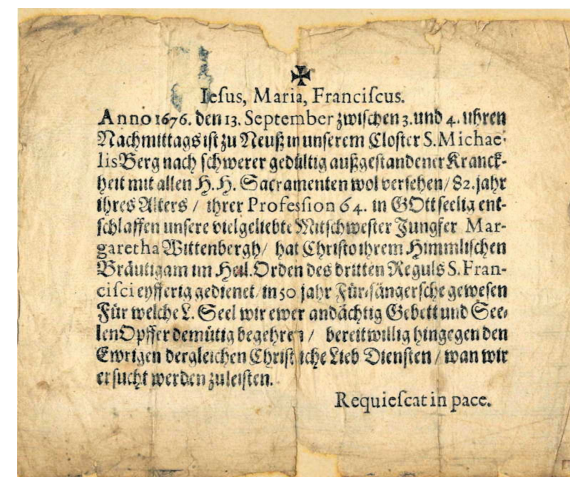 ✠
Iesus, Maria, Franciſcus.
Anno 1676. den 13. September zwiſchen 3. und 4. uhren
Nachmittags iſt zu Neuß in unſerem Cloſter S. Michae-
lis Berg nach ſchwerer gedültig außgeſtandener Kranck-
heit mit allen H. H. Sacramenten wol verſehen / 82. jahr
ihres Alters / ihrer Profeſſion 64. in GOtt ſeelig ent-
ſchlaffen unſere vielgeliebte Mitſchweſter Jungfer Mar-
garetha Wittenbergh / hat Chriſto ihrem Himmliſchen
Bräutigam im Heil. Orden des dritten Reguls S. Fran-
ciſci eyfferig gedienet / in 50 jahr Fürſängerſche geweſen
Für welche L. Seel wir ewer andächtig Gebett und See-
len Opffer demütig begehren / bereitwillig hingegen den
Ewrigen dergleichen Chriſtliche Lieb Dienſten / wan wir
erſucht werden zuleiſten.
Requieſcat in pace.